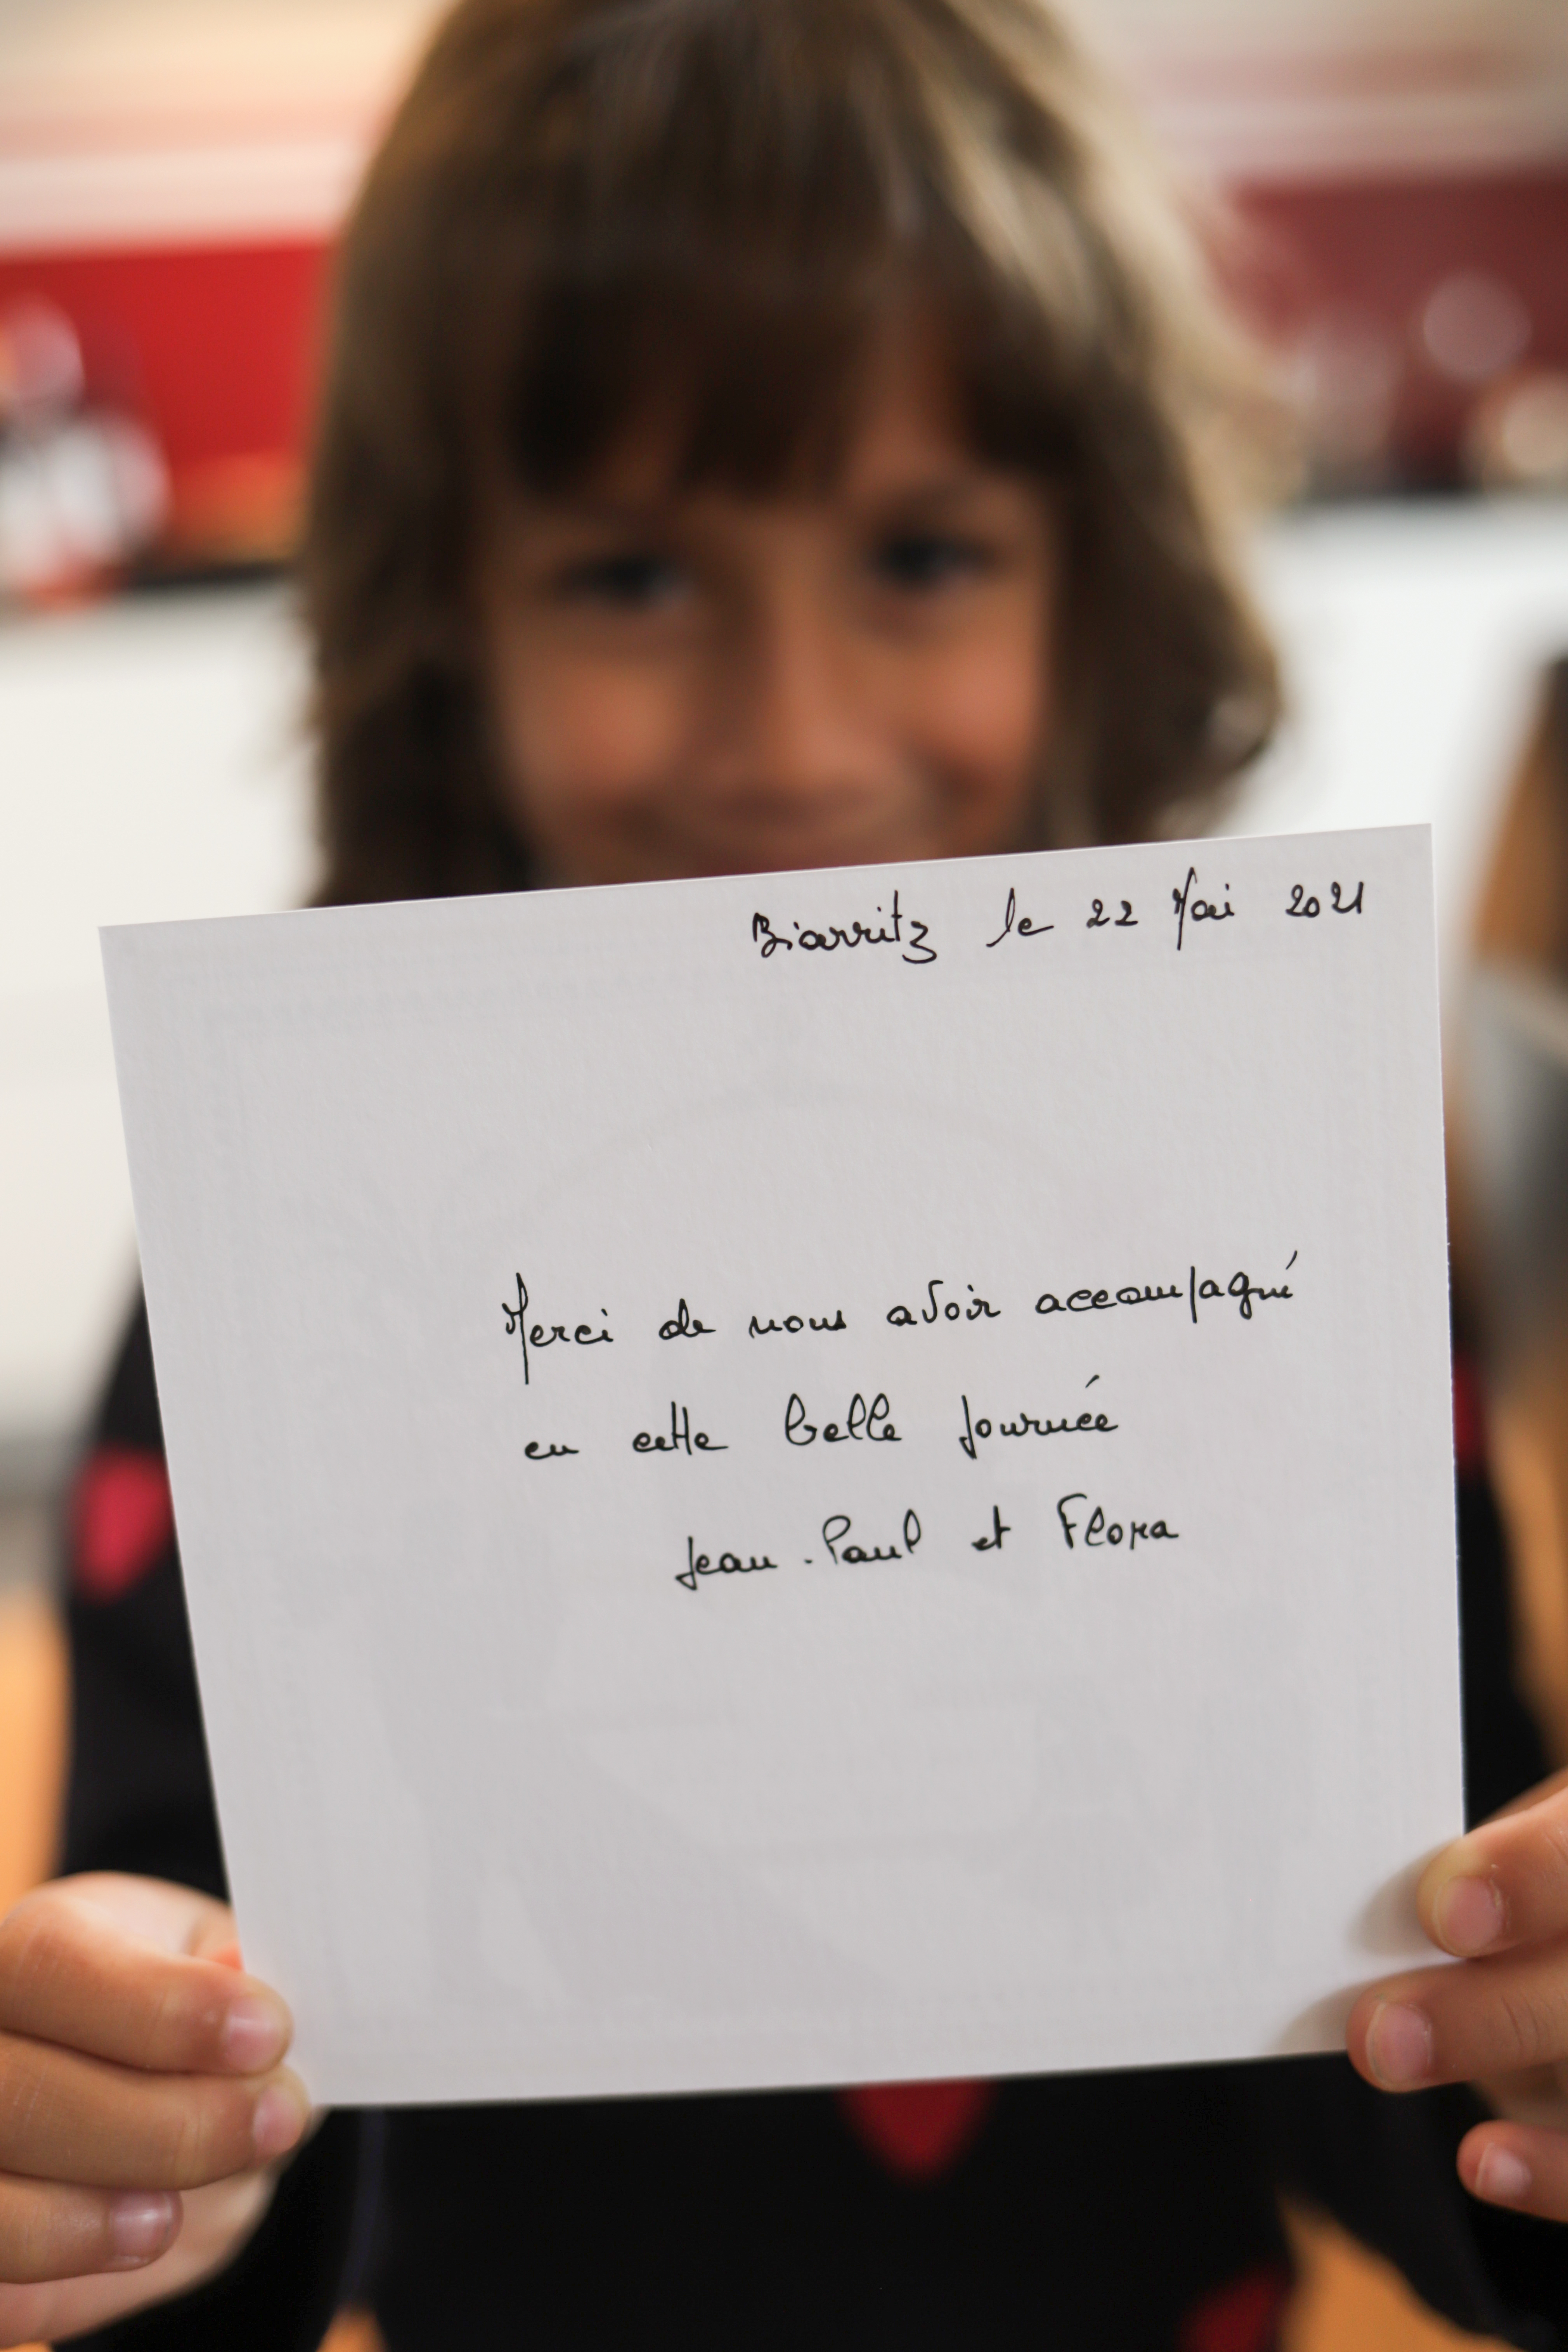 Biarritz le 22 Mai 2021
Merci de nous avoir accompagné
en cette belle journée
Jean-Paul et Flora